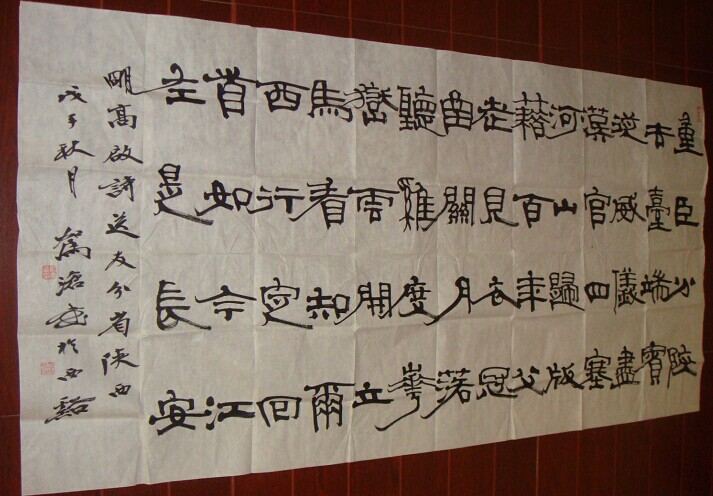 重臣分陝
去臺端賓
從威儀盡
漢官四塞
河山歸版
藉百年父
老見衣冠
函關月落
聽雞度華
嶽雲開立
馬看知爾
西行定回
首如今江
左是長安
明高啟詩送友分省陝西
戊子秋月 書於西